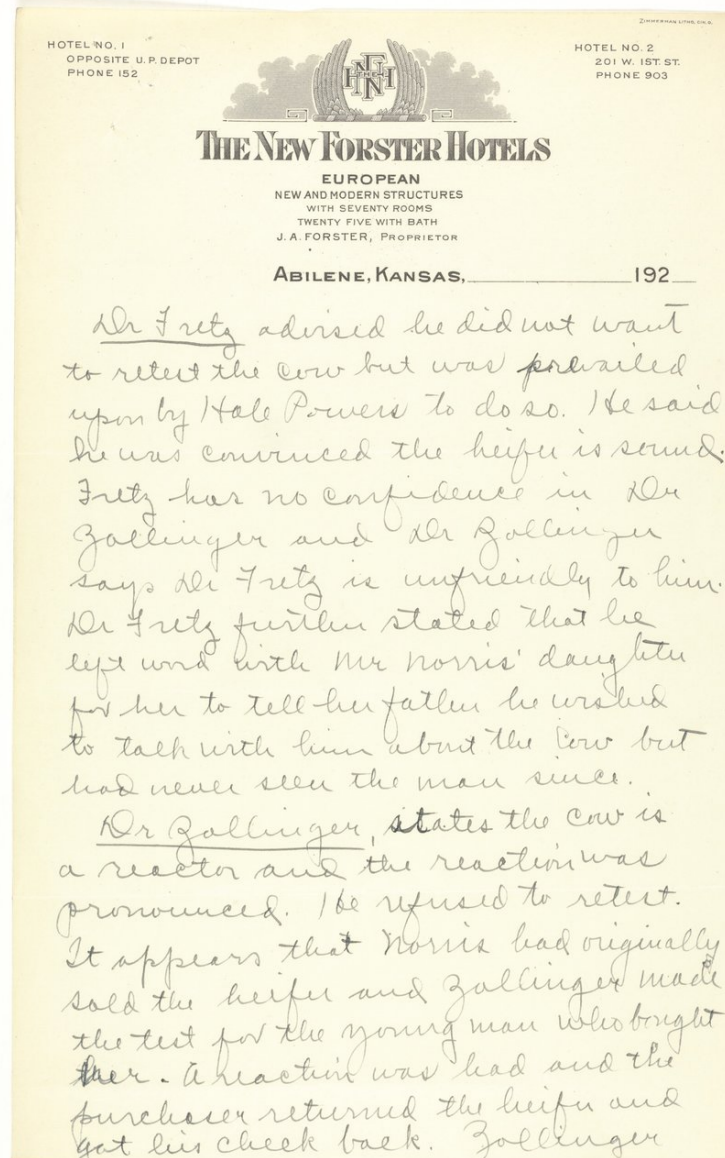 ZIMMERMAN LITHO. CIN. O.
HOTEL NO. 1
OPPOSITE U. P. DEPOT
PHONE 152
HOTEL NO. 2
201 W. 1ST. ST.
PHONE 903
THE
THE NEW FORSTER HOTELS
EUROPEAN
NEW AND MODERN STRUCTURES
WITH SEVENTY ROOMS
TWENTY FIVE WITH BATH
J. A. FORSTER, PROPRIETOR
ABILENE, KANSAS, 192
Dr Fretz advised he did not want
to retest the cow but was prevailed
upon by Hale Powers to do so. He said
he was convinced the heifer is sound.
Fretz has no confidence in Dr
Zollinger and Dr Zollinger
says Dr Fretz is unfriendly to him.
Dr Fretz further stated that he
left word with Mr Norris' daughter
for her to tell her father he wished
to talk with him about the cow but
had never seen the man since.
Dr Zollinger, states the cow is
a reactor and the reaction was
pronounced. He refused to retest.
It appears that Norris had originally
sold the heifer and Zollinger made
the test for the young man who bought
her. A reaction was had and the
purchaser returned the heifer and
got his check back. Zollinger